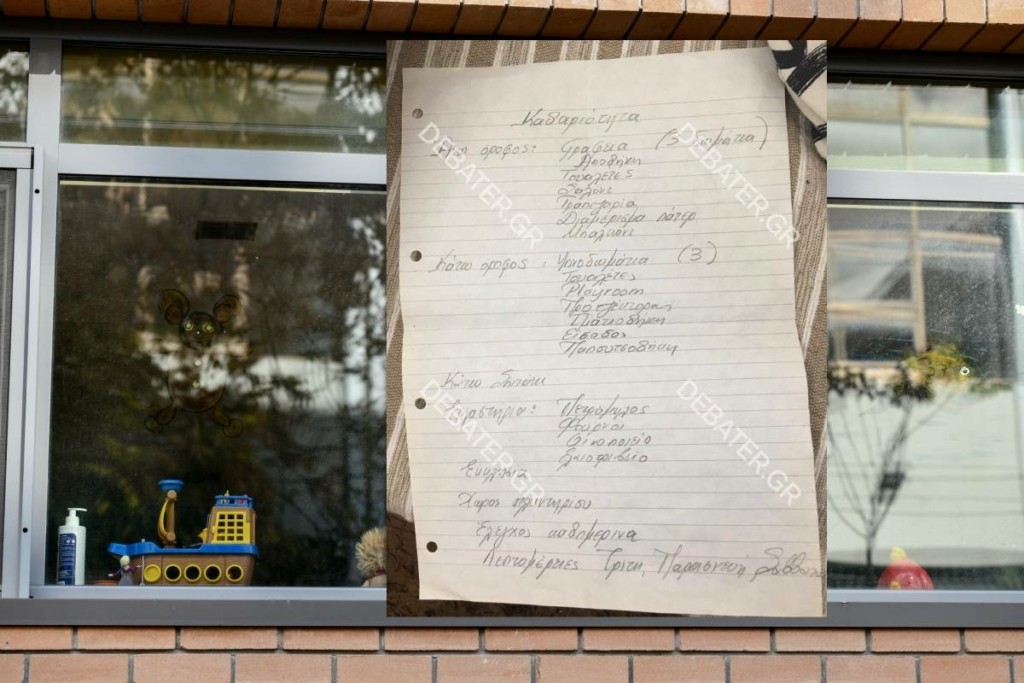 Καθαριότητα
Πάνω όροφος: Γραφεία (3 δωμάτια)
Αποθήκη
Τουαλέτες
Σαλόνι
Τραπεζαρία
Διαμέρισμα πάτερ
Μπαλκόνι
Κάτω όροφος: Υπνοδωμάτια (3)
Τουαλέτες
Playroom
Πιατοθήκη
Είσοδος
Παπουτσοθήκη
Κάτω Σπιτάκι
Εργαστήρια: Πετρόμυλος
Φούρνοι
Οινοποιείο
Ελαιοτριβείο
Εκκλησία
Χώρος πλυντηρίου
Έλεγχος καθημερινά
Λεπτομέρειες Τρίτη, Παρασκευή, Σάββατο
DEBATER.GR
DEBATER.GR
DEBATER.GR
DEBATER.GR